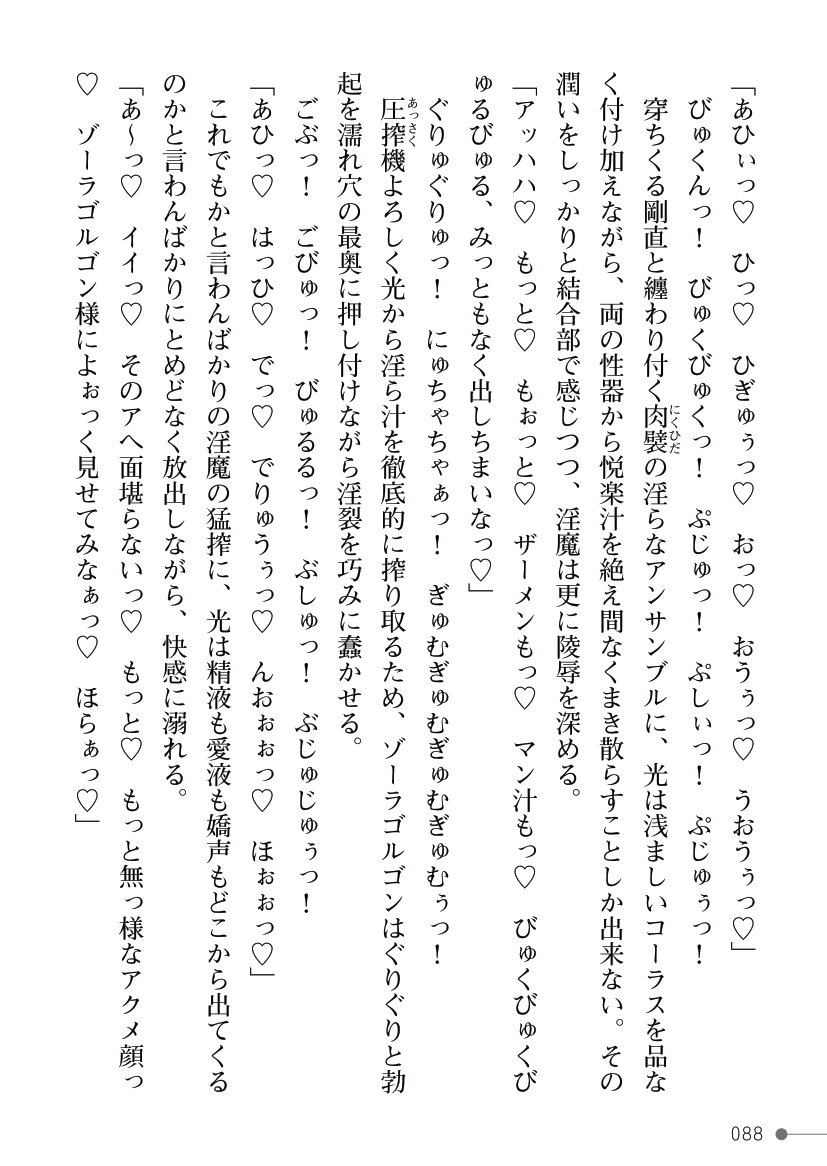 「あひぃっ♡　ひっ♡　ひぎゅぅっ♡　おっ♡　おうぅっ♡　うおうぅっ♡」
　びゅくんっ！　びゅくびゅくっ！　ぷじゅっ！　ぷしぃっ！　ぷじゅぅっ！
　穿ちくる剛直と纏わり付く肉襞の淫らなアンサンブルに、光は浅ましいコーラスを品な
く付け加えながら、両の性器から悦楽汁を絶え間なくまき散らすことしか出来ない。その
潤いをしっかりと結合部で感じつつ、淫魔は更に陵辱を深める。
「アッハハ♡　もっと♡　もぉっと♡　ザーメンもっ♡　マン汁もっ♡　びゅくびゅくび
ゅるびゅる、みっともなく出しちまいなっ♡」
　ぐりゅぐりゅっ！　にゅちゃちゃぁっ！　ぎゅむぎゅむぎゅむぎゅむぅっ！
　圧搾機よろしく光から淫ら汁を徹底的に搾り取るため、ゾーラゴルゴンはぐりぐりと勃
起を濡れ穴の最奥に押し付けながら淫裂を巧みに蠢かせる。
　ごぶっ！　ごびゅっ！　びゅるるっ！　ぶしゅっ！　ぶじゅじゅぅっ！
「あひっ♡　はっひ♡　でっ♡　でりゅうぅっ♡　んおぉぉっ♡　ほぉぉっ♡」
　これでもかと言わんばかりの淫魔の猛搾に、光は精液も愛液も嬌声もどこから出てくる
のかと言わんばかりにとめどなく放出しながら、快感に溺れる。
「あ～っ♡　イイっ♡　そのアヘ面堪らないっ♡　もっと♡　もっと無っ様なアクメ顔っ
♡　ゾーラゴルゴン様によぉっく見せてみなぁっ♡　ほらぁっ♡」
にくひだ
あっさく
088